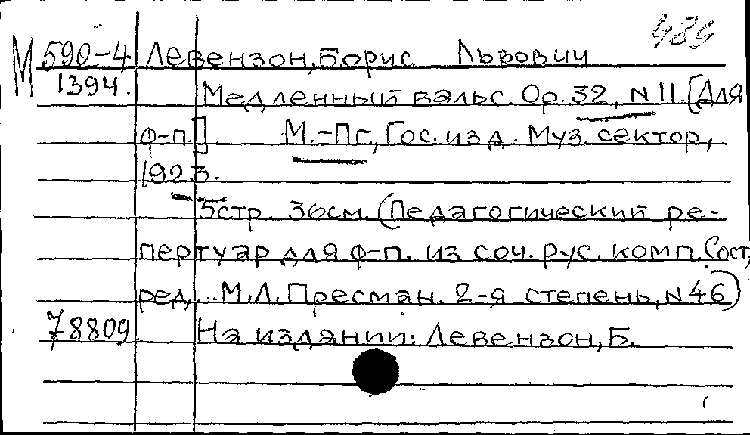 489
М 590-4 Левензон, Борис Львович
1394.
Медленный вальс. Op. 32, N 11. [Для
ф-п.] М.-Пг., Гос. изд. Муз. сектор,
1923.
5 стр. 36 см. (Педагогический ре-
пертуар для ф-п. из соч. рус. комп. Сост.,
ред. М.Л. Пресман. 2-я степень, N 46)
78809 На издании: Левензон, Б.